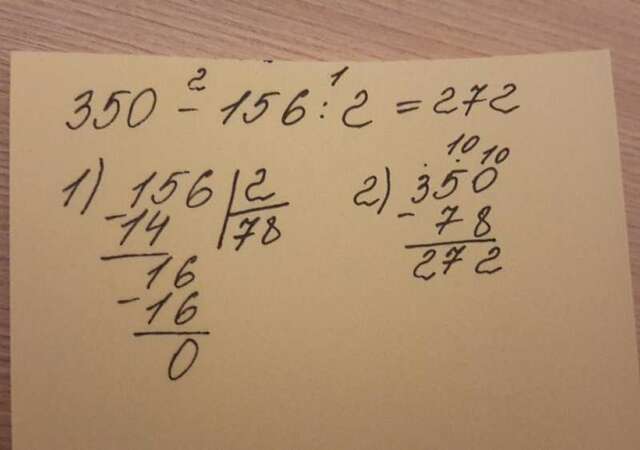 2 1
350 - 156 : 2 = 272
10 10
1) 156 | 2 2) 350
- 14 78 - 78
16 272
- 16
0